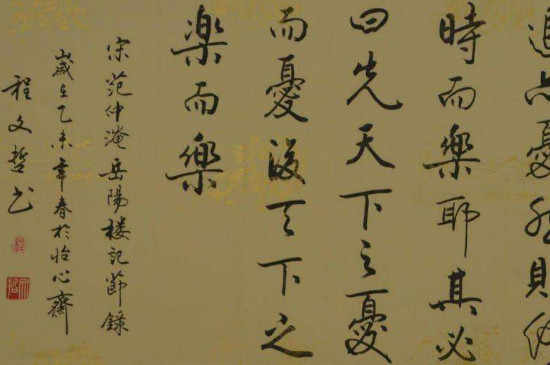 退亦憂然則何
時而樂耶其必
曰先天下之憂
而憂後天下之
楽而樂
宋范仲淹岳陽楼記節錄
歲在乙未年春於怡心齋
程文哲书